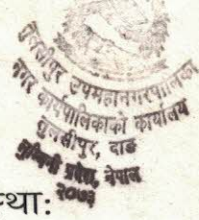 तुलसीपुर उपमहानगरपालिका
नगर कार्यपालिकाको कार्यालय
तुलसीपुर, दाङ
लुम्बिनी प्रदेश, नेपाल
२०७३
था: